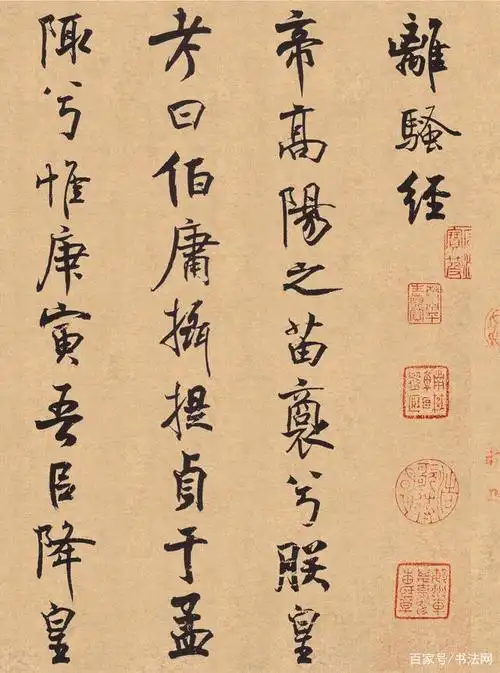 離騷經
帝高陽之苗裔兮朕皇
考曰伯庸攝提貞于孟
陬兮惟庚寅吾以降皇
百家号/书法网